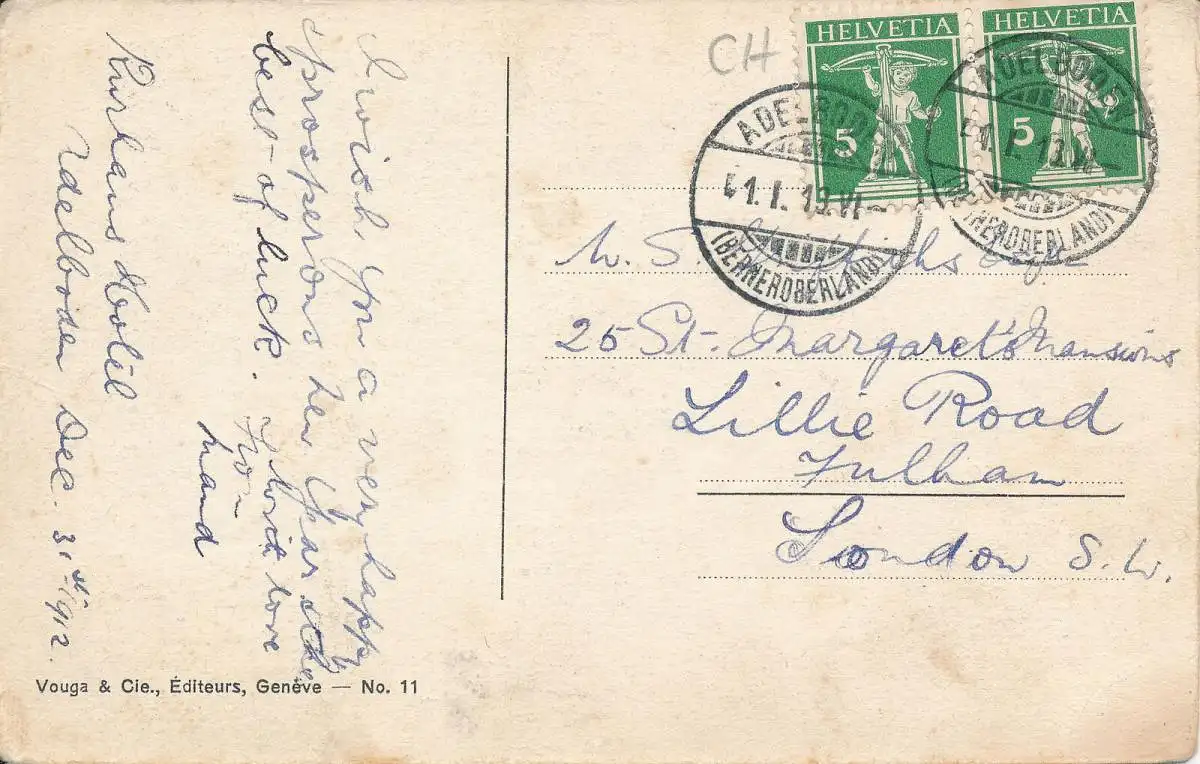 Kurhaus Hotel
Adelboden Dec. 31st 1912.
I wish you a very happy
& prosperous New Year & the
best of luck.
With love
from
Maud
CH
HELVETIA
5
HELVETIA
5
ADELBODEN
1.I.13.VI–
(BERNEROBERLAND)
ADELBODEN
1.I.13.VI–
(BERNEROBERLAND)
W. S. Esqre
25 St. Margaret's Mansions
Lillie Road
Fulham
London S.W.
Vouga & Cie., Éditeurs, Genève — No. 11